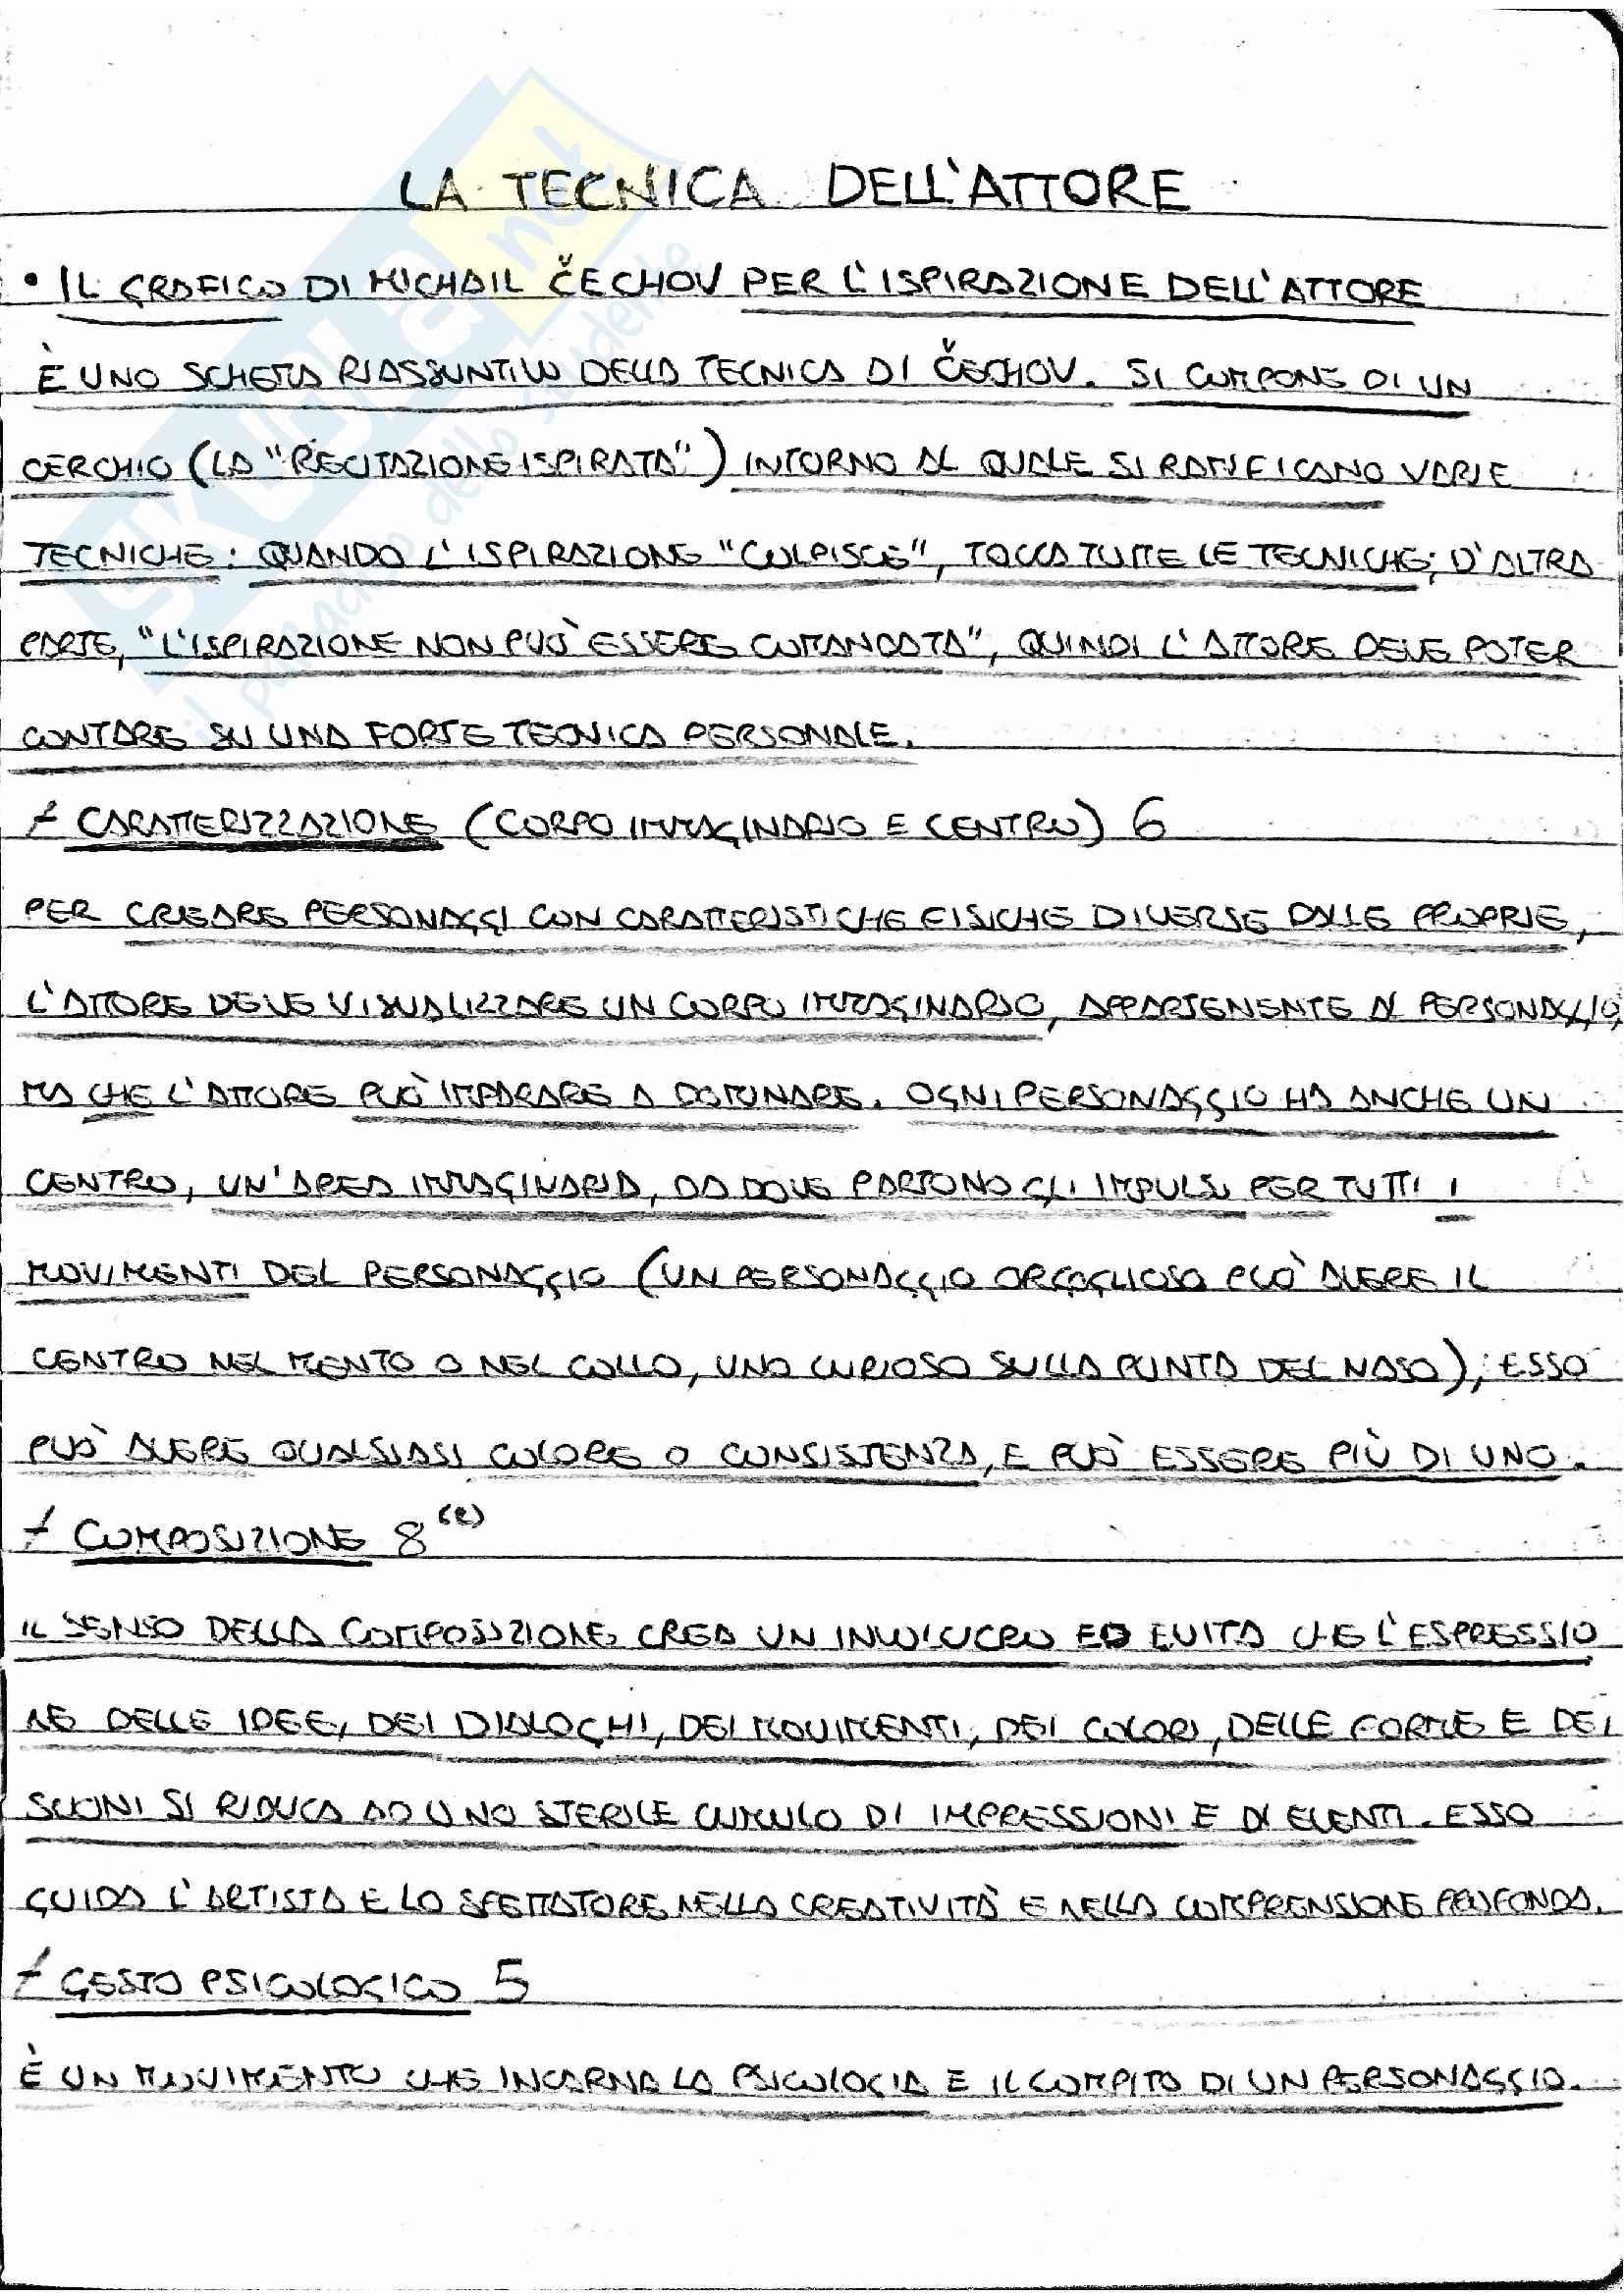 LA TECNICA DELL'ATTORE
• IL GRAFICO DI MICHAIL ČECHOV PER L'ISPIRAZIONE DELL'ATTORE
È UNO SCHEMA RIASSUNTIVO DELLA TECNICA DI ČECHOV. SI COMPONE DI UN
CERCHIO (LA "RECITAZIONE ISPIRATA") INTORNO AL QUALE SI RAMIFICANO VARIE
TECNICHE: QUANDO L'ISPIRAZIONE "COLPISCE", TOCCA TUTTE LE TECNICHE; D'ALTRA
PARTE, "L'ISPIRAZIONE NON PUÒ ESSERE COMANDATA", QUINDI L'ATTORE DEVE POTER
CONTARE SU UNA FORTE TECNICA PERSONALE.
/ CARATTERIZZAZIONE (CORPO IMMAGINARIO E CENTRO) 6
PER CREARE PERSONAGGI CON CARATTERISTICHE FISICHE DIVERSE DALLE PROPRIE,
L'ATTORE DEVE VISUALIZZARE UN CORPO IMMAGINARIO, APPARTENENTE AL PERSONAGGIO,
MA CHE L'ATTORE PUÒ IMPARARE A DOMINARE. OGNI PERSONAGGIO HA ANCHE UN
CENTRO, UN'AREA IMMAGINARIA, DA DOVE PARTONO GLI IMPULSI PER TUTTI I
MOVIMENTI DEL PERSONAGGIO (UN PERSONAGGIO ORGOGLIOSO PUÒ AVERE IL
CENTRO NEL MENTO O NEL COLLO, UNO CURIOSO SULLA PUNTA DEL NASO); ESSO
PUÒ AVERE QUALSIASI COLORE O CONSISTENZA, E PUÒ ESSERE PIÙ DI UNO.
/ COMPOSIZIONE 8
IL SENSO DELLA COMPOSIZIONE CREA UN INVOLUCRO ED EVITA CHE L'ESPRESSIO
NE DELLE IDEE, DEI DIALOGHI, DEI MOVIMENTI, DEI COLORI, DELLE FORME E DEI
SUONI SI RIDUCA AD UNO STERILE CUMULO DI IMPRESSIONI E DI EVENTI. ESSO
GUIDA L'ARTISTA E LO SPETTATORE NELLA CREATIVITÀ E NELLA COMPRENSIONE PROFONDA.
/ GESTO PSICOLOGICO 5
È UN MOVIMENTO CHE INCARNA LA PSICOLOGIA E IL COMPITO DI UN PERSONAGGIO.
SKUOLA.net
il paradiso dello studente